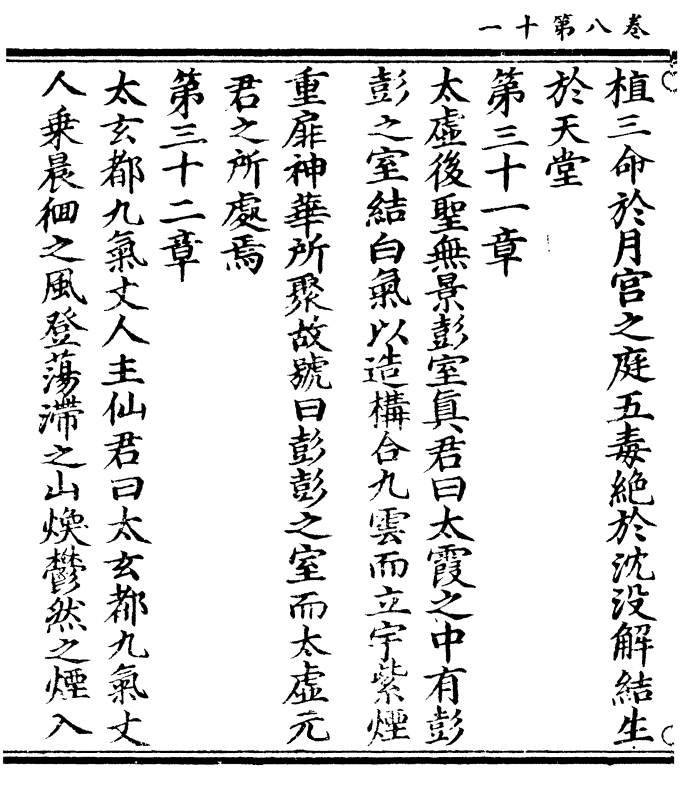 卷八第十一
植三命於月宮之庭五毒絶於沈没解結生
於天堂
第三十一章
太虛後聖無景彭室真君曰太霞之中有彭
彭之室結白氣以造構合九雲而立宇紫煙
重扉神華所聚故號曰彭彭之室而太虛元
君之所處焉
第三十二章
太玄都九氣丈人主仙君曰太玄都九氣丈
人乗晨徊之風登蕩滯之山煥鬱然之煙入